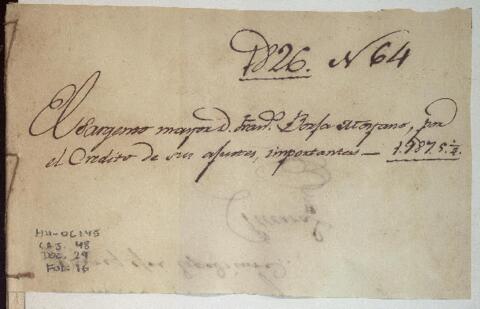 1826. N 64
El Sargento mayor D. Fran.co Borja Moyano, por
el Credito de sus ajustes, importantes — 1.987 5 ½
HU-OL145
CAJ. 48
DOC. 29
FOL: 16